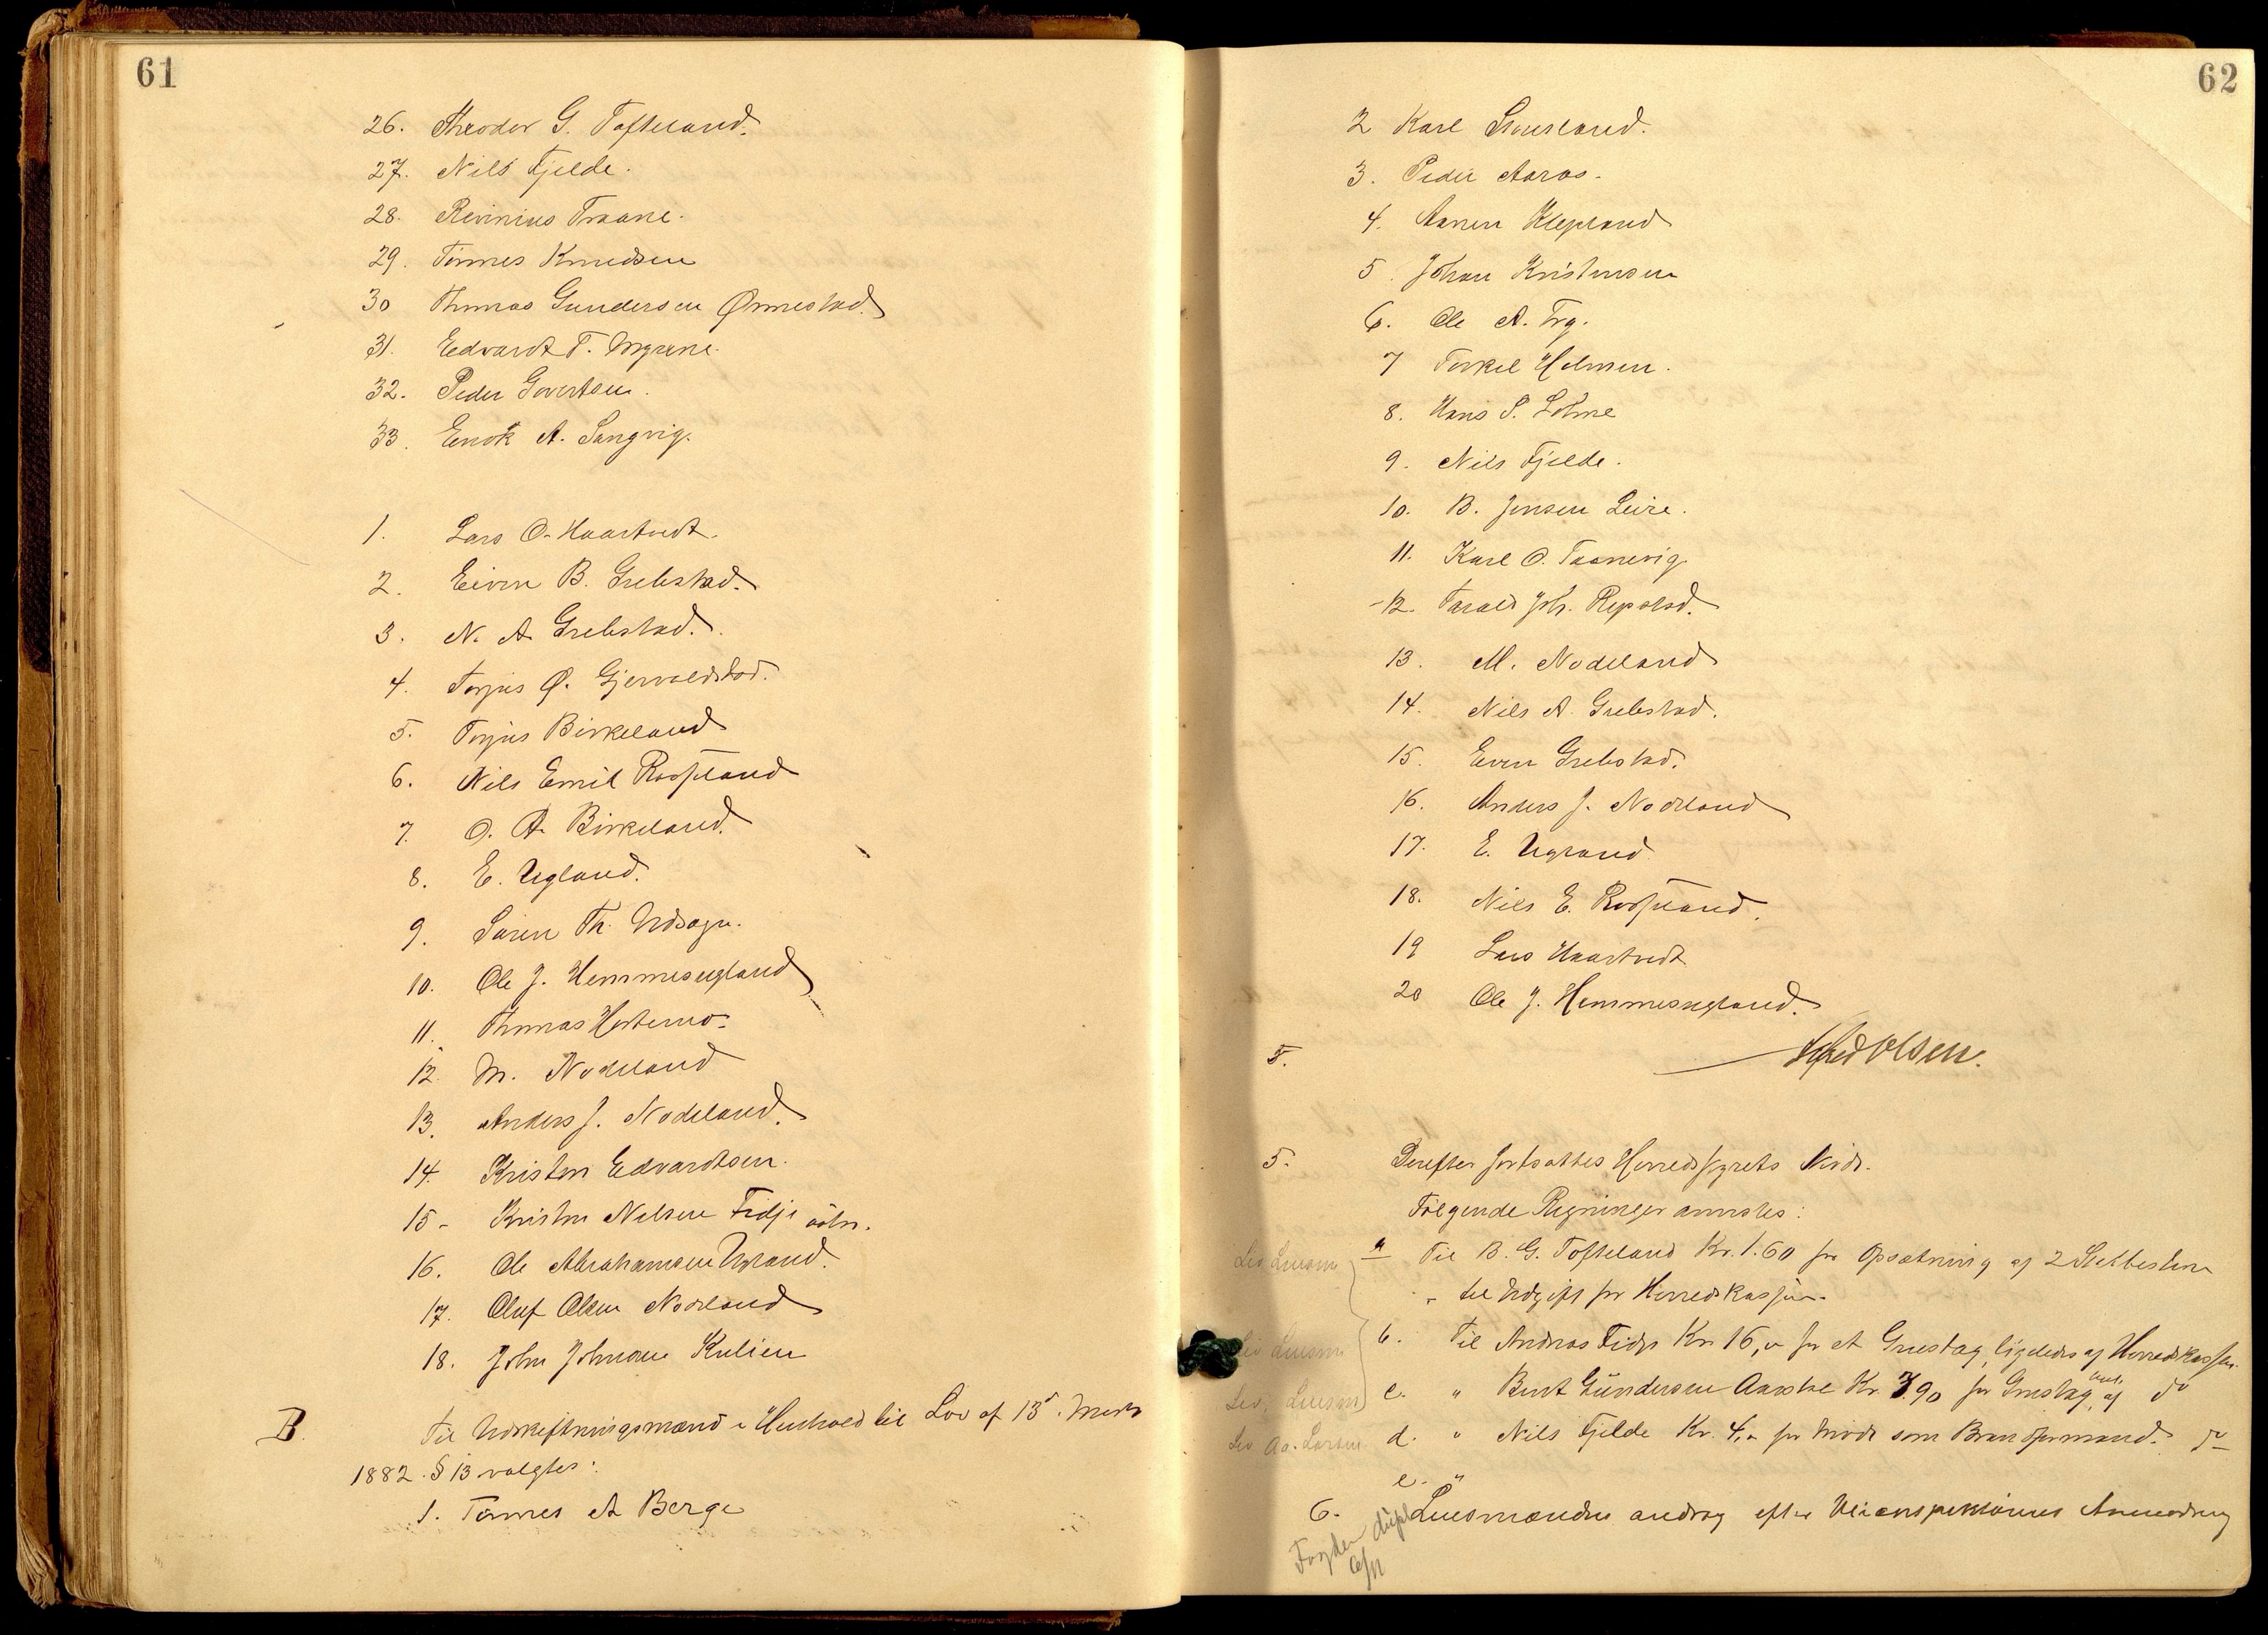 61
26. Theodor G. Tofteland.
27. Nils Fjelde.
28. Revinius Traane.
29. Tönnes Knudsen
30 Thomas Gundersen Ormestad.
31. Edvardt T. Mgrene.
32. Peder Govertsen.
33. Enok A. Langvig.
1. Lars O. Haartvedt.
2. Eiven B. Grebstad.
3. N. A. Grebstad.
4. Torjus O. Gjervoldstad.
5. Torjus Birkeland
6. Nils Emil Rossland
7. O. A. Birkeland.
8. E. Ugland.
9. Sören Th. Udsogn.
10. Ole J. Hemmesugland
11. Thomas Hortemo.
12. M. Nodeland
13. Anders J. Nodeland.
14. Kristen Edvardtsen.
15- Kristen Nelsen Fidje östr.
16. Ole Abrahamsen Ugland.
17. Oluf Olsen Nodeland
18. John Johnsen Kulien
B. Til Udskiftningsmænd i Henhold til Lov af 13de. Marts
1882. § 13 valgtes:
1. Tönnes A Berge
62
2 Karl Stousland.
3. Peder Aaros.
4. Aanen Klepland
5. Johan Kristensen
6. Ole A. Try.
7 Torkel Holmen.
8. Hans S. Lohne
9. Nils Fjelde.
10. B. Jensen Leire.
11. Karl O. Taanevig.
12. Tarald Joh. Repstad.
13. M. Nodeland
14. Nils A. Grebstad.
15. Even Grebstad.
16. Anders J. Nodeland
17. E. Ugland
18. Nils E. Rossland.
19 Lars Haartvedt
20 Ole J. Hemmesugland.
5. Alfred Olsen.
5. Derefter fortsattes Herredsstyrets Möde.
Fölgende Regninger anvistes:
a Til B. G. Tofteland Kr. 1.60 for Opsætning af 2 Stabbestene
til Udgift for Herredskassen.
b. Til Andreas Fidje Kr 16,00 for et Grustag, ligeledes af Herredskassen.
c. " Bent Gundersen Kr. 7.90 for Grustag, af do
d. " Nils Fjelde Kr. 4,00 for Möde som Brandformand. do
e. "
Lev. Lensm
Lev Lensm
Lev. Lensm
Lev Aa. Larsen
6. Lensmanden androg efter Veiinspektörens Anmodning
Fogden dupl
6/11